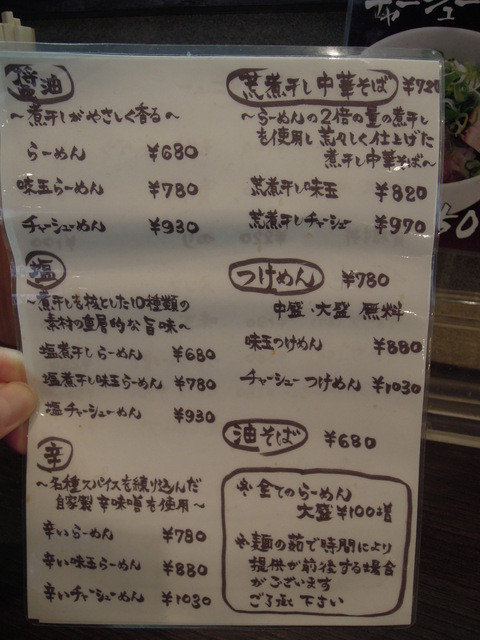 醤油
～煮干しがやさしく香る～
らーめん ¥680
味玉らーめん ¥780
チャーシューめん ¥930
塩
～煮干しを核とした10種類の
素材の重層的な旨味～
塩煮干しらーめん ¥680
塩煮干し味玉らーめん ¥780
塩チャーシューめん ¥930
辛
～各種スパイスを練り込んだ
自家製辛味噌を使用～
辛いらーめん ¥780
辛い味玉らーめん ¥880
辛いチャーシューめん ¥1030
荒煮干し中華そば ¥720
～らーめんの2倍の量の煮干し
を使用し荒々しく仕上げた
煮干し中華そば～
荒煮干し味玉 ¥820
荒煮干しチャーシュー ¥970
つけめん ¥780
中盛・大盛 無料
味玉つけめん ¥880
チャーシューつけめん ¥1030
油そば ¥680
※全てのらーめん
大盛¥100増
※麺の茹で時間により
提供が前後する場合
がございます
ご了承下さい
チャーシュー